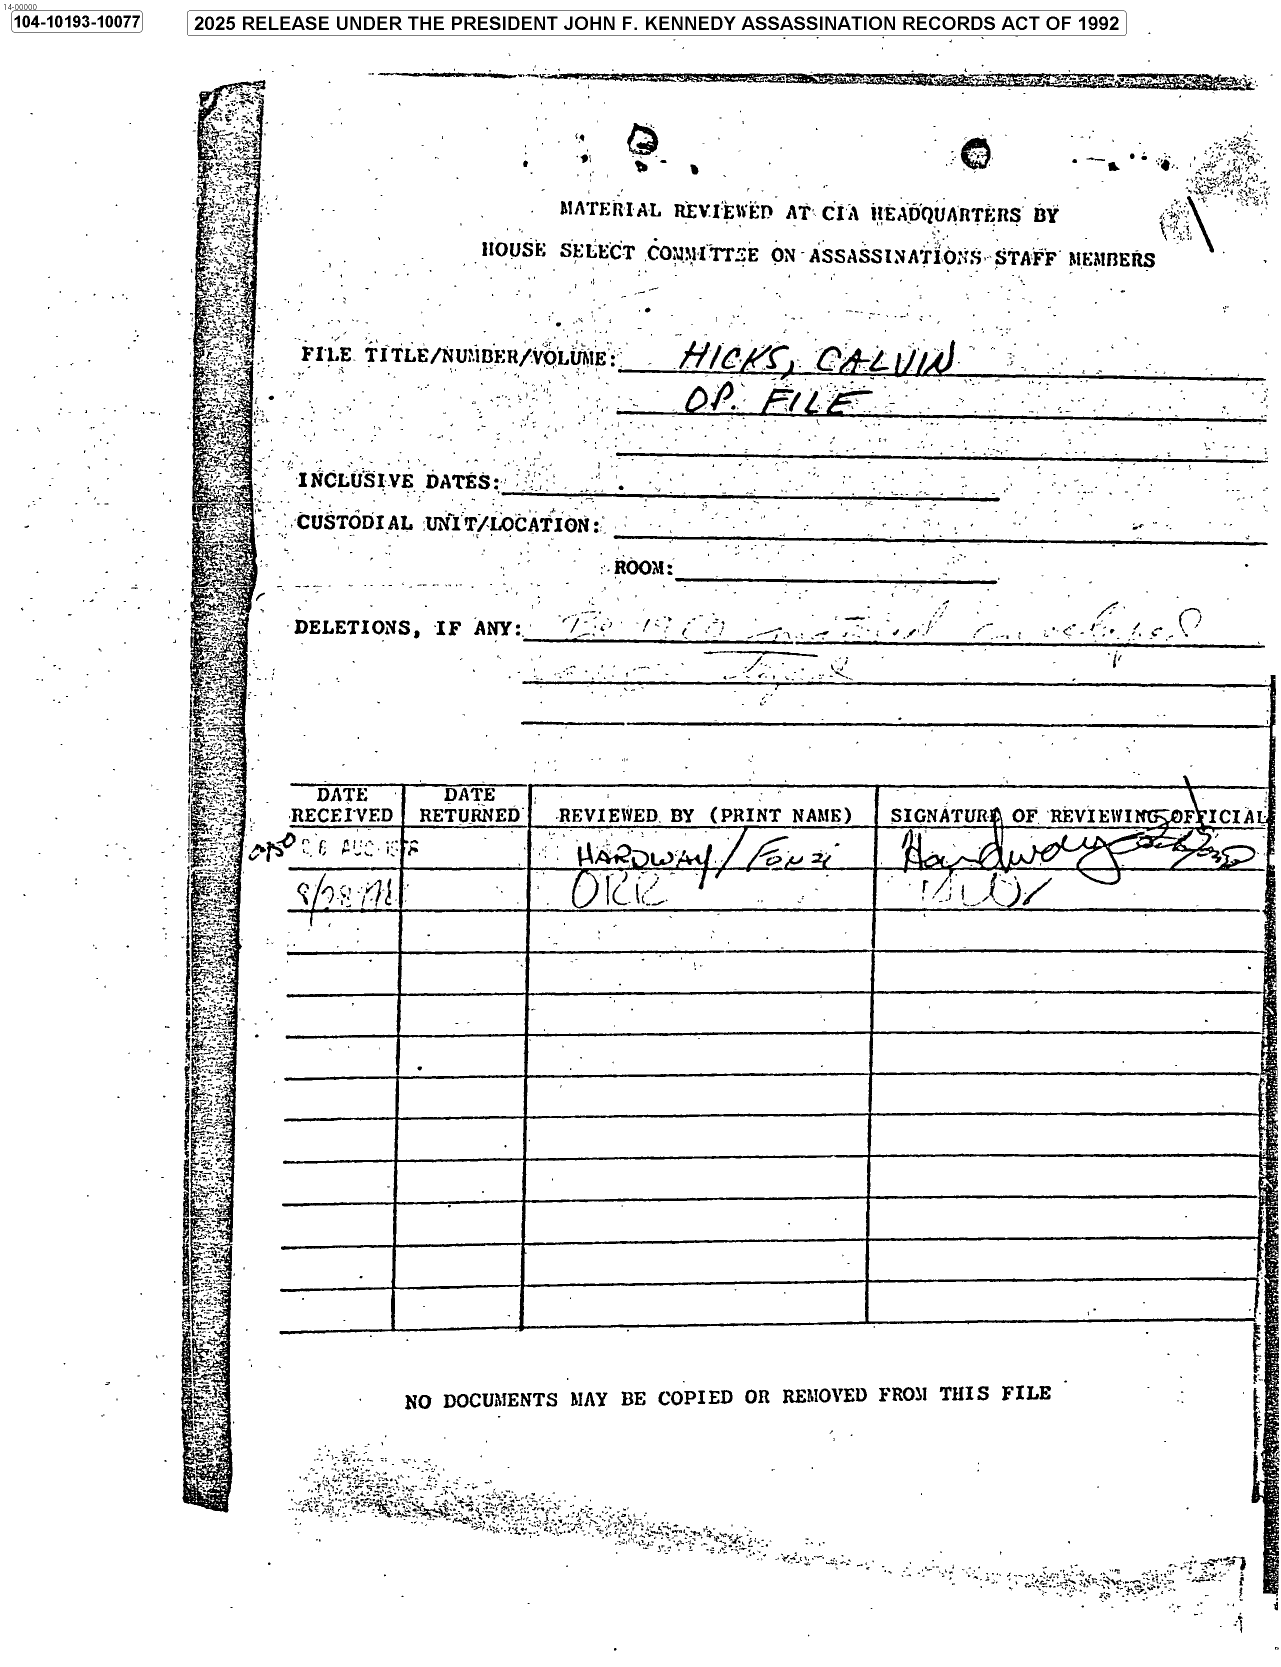 14-00000
104-10193-10077
2025 RELEASE UNDER THE PRESIDENT JOHN F. KENNEDY ASSASSINATION RECORDS ACT OF 1992
MATERIAL REVIEWED AT CIA HEADQUARTERS BY
HOUSE SELECT COMMITTEE ON ASSASSINATIONS STAFF MEMBERS
FILE TITLE/NUMBER/VOLUME: HICKS, CALVIN
OP. FILE
INCLUSIVE DATES:
CUSTODIAL UNIT/LOCATION:
ROOM:
DELETIONS, IF ANY: material
DATE RECEIVED DATE RETURNED REVIEWED BY (PRINT NAME) SIGNATURE OF REVIEWING OFFICIAL
AUG HARDWAY / FONZI Hardway
8/28/78 ORR
NO DOCUMENTS MAY BE COPIED OR REMOVED FROM THIS FILE